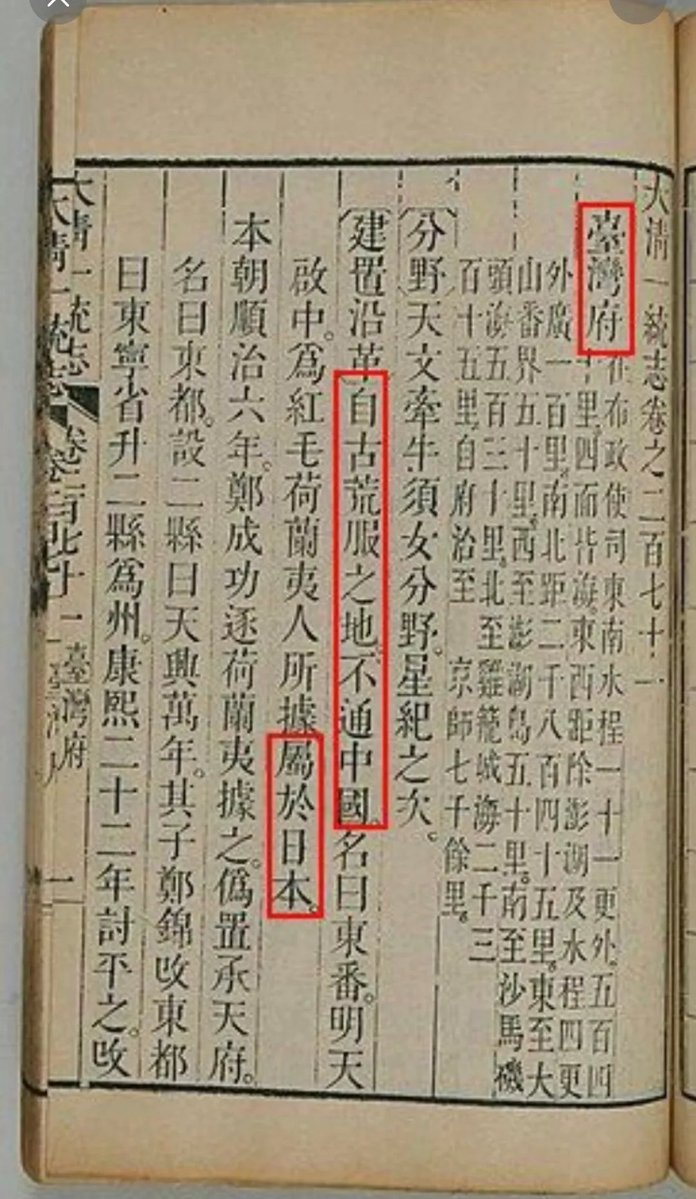 大淸一統志卷之二百七十一
臺灣府 在布政使司東南水程一十一更外五百四
十里。四面皆海。東西距除澎湖及水程四更
外廣一百里。南北距二千八百四十五里。東至大
山番界五十里。西至澎湖島五十里。南至沙馬磯
頭海五百三十里。北至雞籠城海二千三
百十五里。自府治至 京師七千餘里。
〔分野〕天文牽牛須女分野。星紀之次。
〔建置沿革〕自古荒服之地。不通中國。名曰東番。明天
啟中。爲紅毛荷蘭夷人所據。屬於日本。
本朝順治六年。鄭成功逐荷蘭夷據之。僞置承天府。
名曰東都。設二縣。曰天興萬年。其子鄭錦改東都
曰東寧省。升二縣爲州。康熙二十二年討平之。改
大淸一統志 卷二百七十一 臺灣府 一
大淸一統志